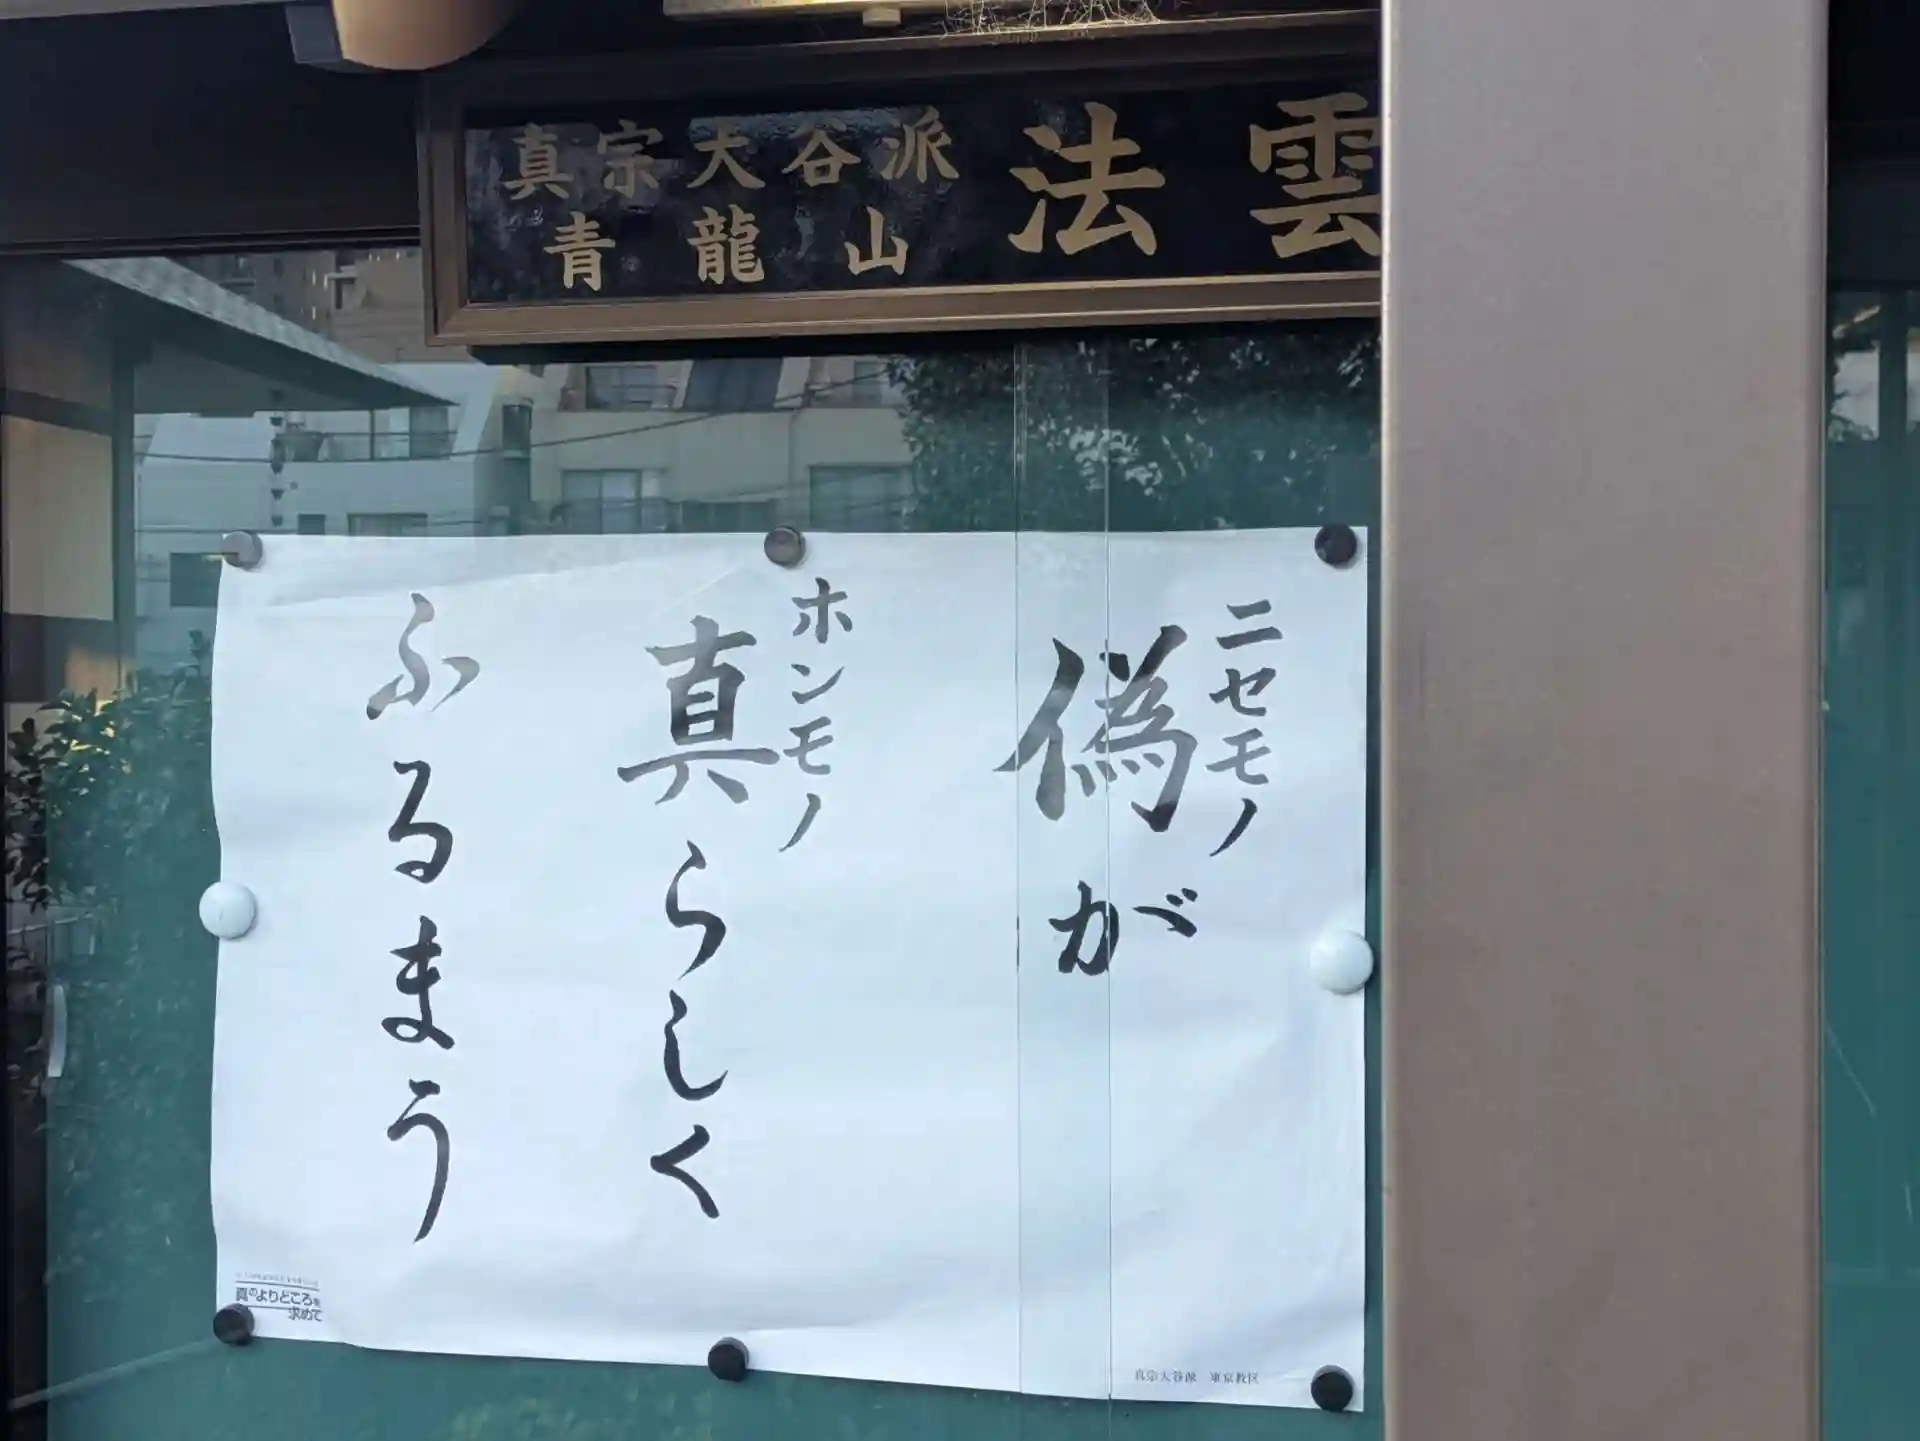 真宗大谷派
青龍山
法雲
偽が
ニセモノ
真らしく
ホンモノ
ふるまう
真のよりどころを
求めて
真宗大谷派 東京教区